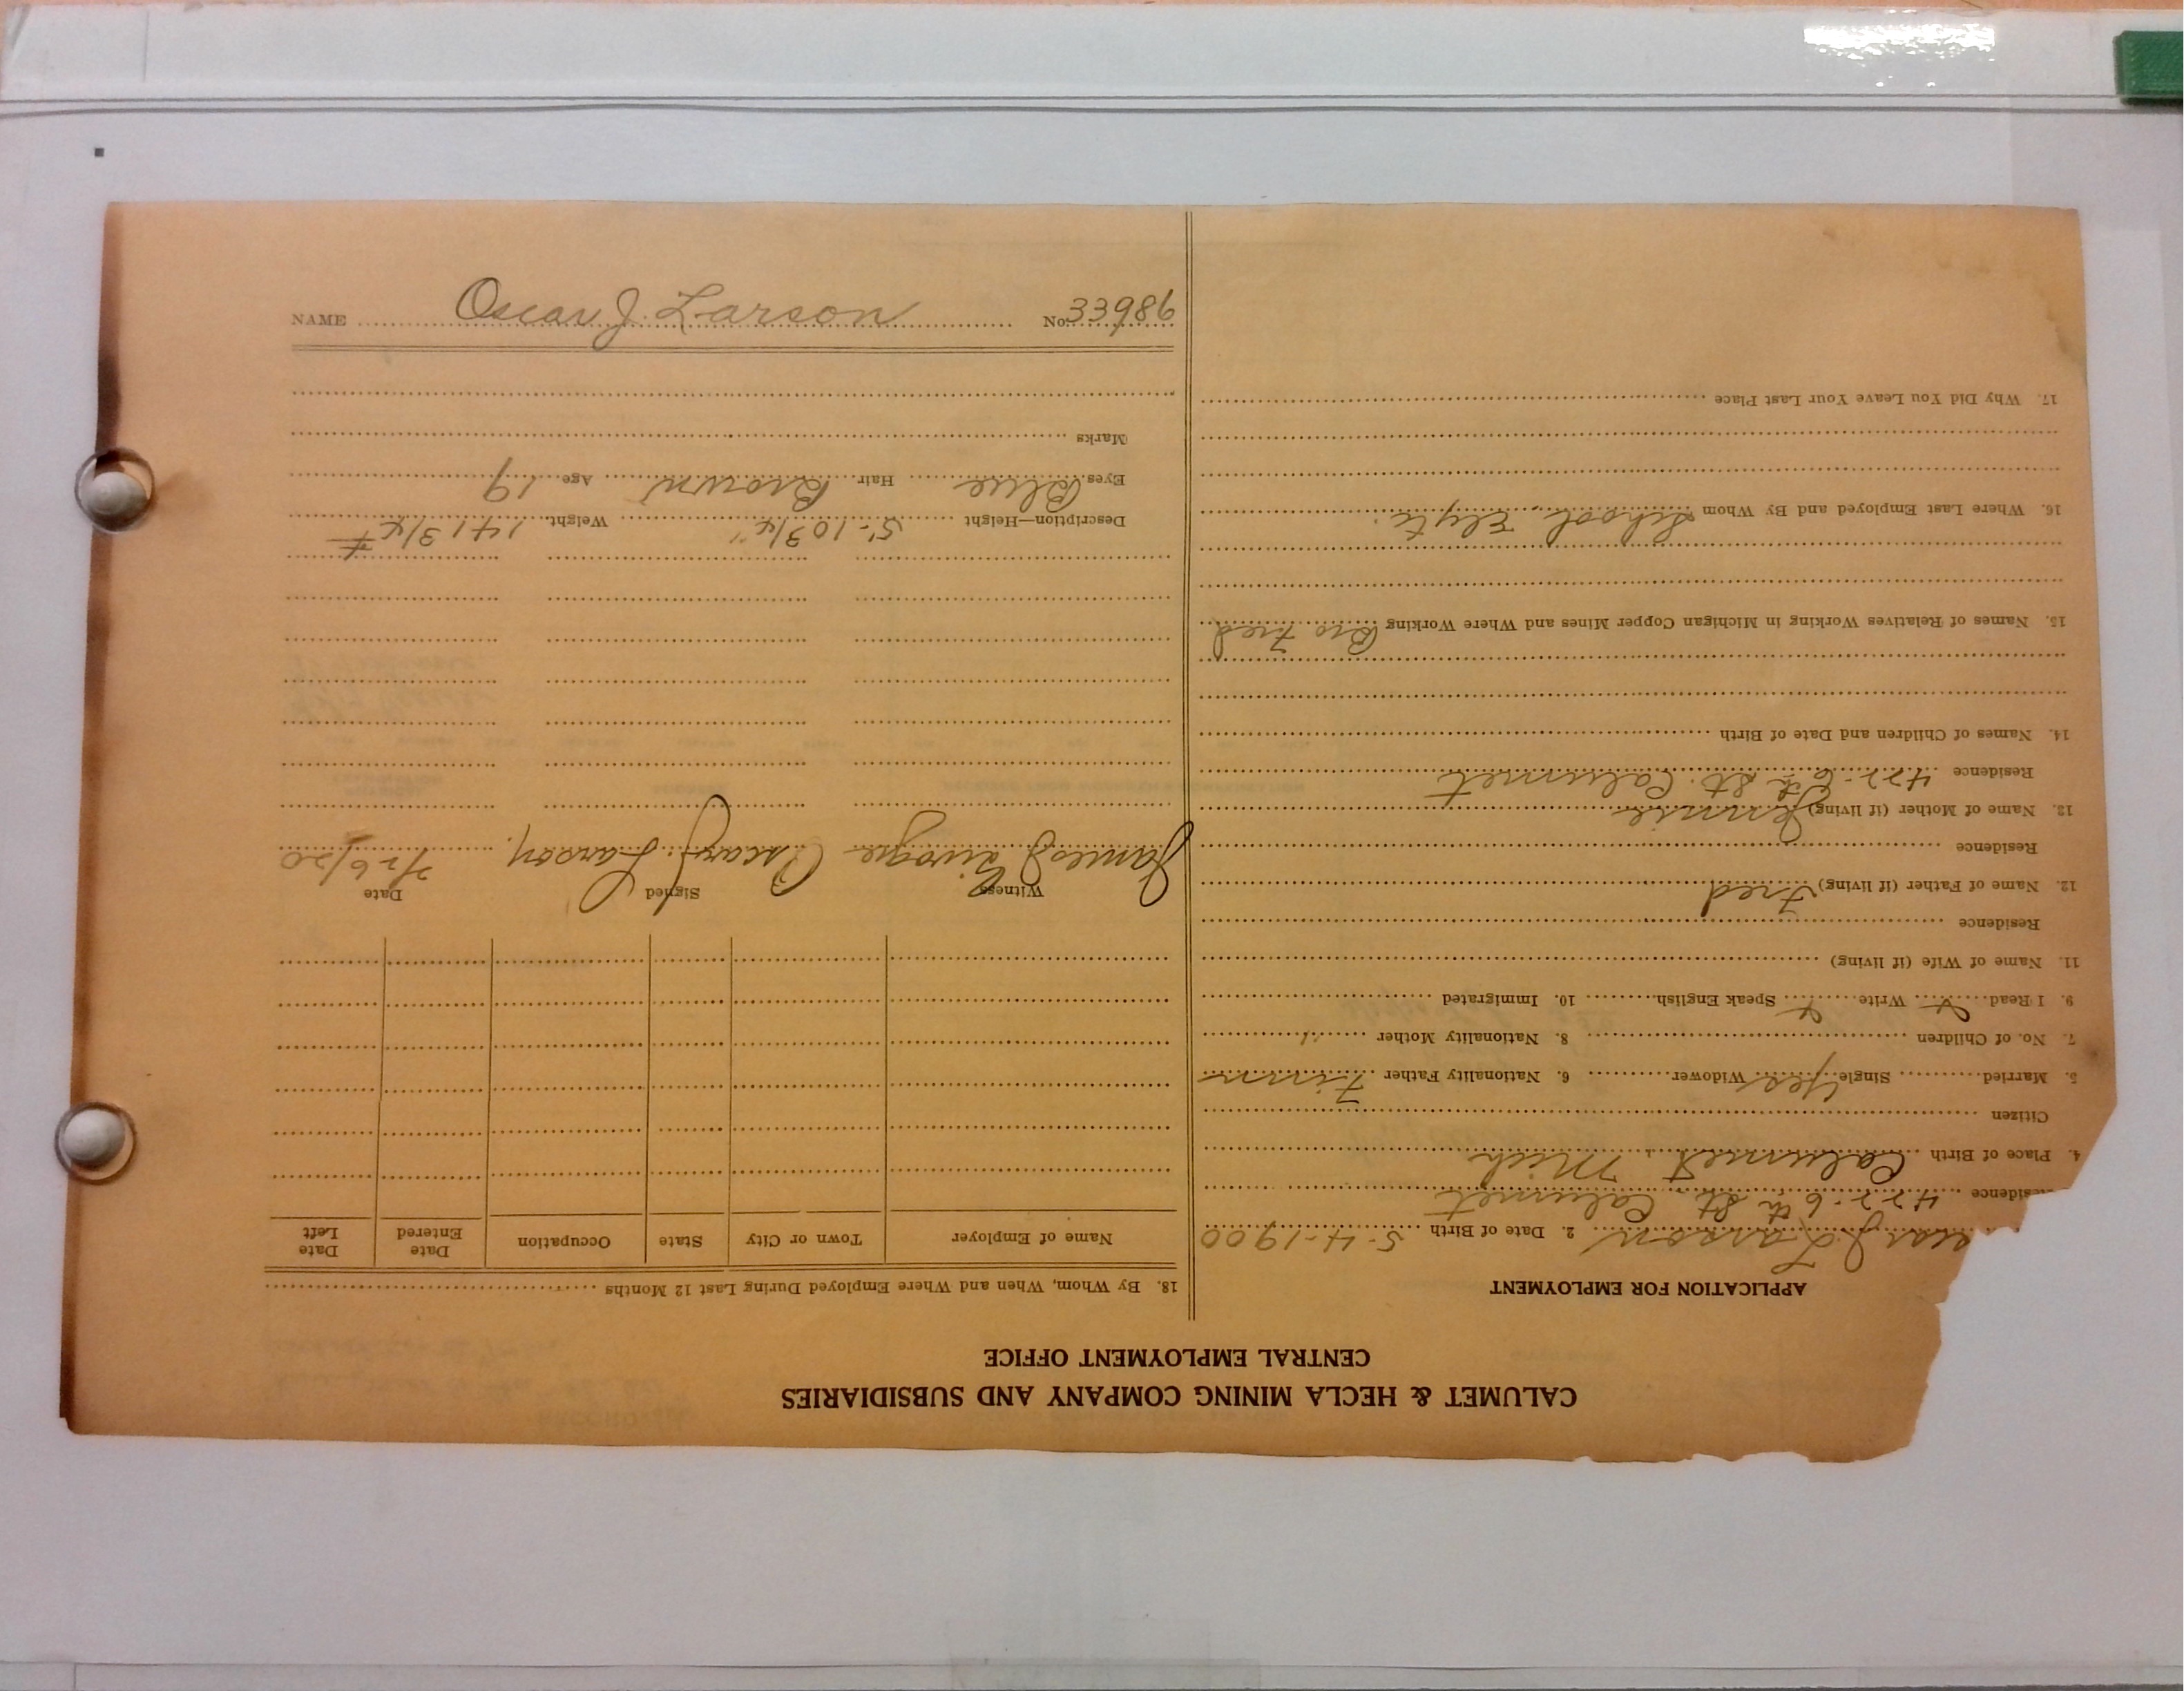 CALUMET & HECLA MINING COMPANY AND SUBSIDIARIES
CENTRAL EMPLOYMENT OFFICE
APPLICATION FOR EMPLOYMENT
scar J. Larson 2. Date of Birth 5-4-1900
Residence 422-6th St. Calumet
4. Place of Birth Calumet, Mich
Citizen
5. Married Single Yes Widower 6. Nationality Father Finn
7. No. of Children 8. Nationality Mother "
9. I Read Write Speak English 10. Immigrated
11. Name of Wife (if living)
Residence
12. Name of Father (if living) Fred
Residence
13. Name of Mother (if living) Jennie
Residence 422-6th St. Calumet
14. Names of Children and Date of Birth
15. Names of Relatives Working in Michigan Copper Mines and Where Working Bro Fred
16. Where Last Employed and By Whom School,
17. Why Did You Leave Your Last Place
18. By Whom, When and Where Employed During Last 12 Months
Name of Employer Town or City State Occupation Date Entered Date Left
Witness Signed Date
James Oscar J. Larson. 7/26/20
Description—Height 5'-10 3/4" Weight 141 3/4 #
Eyes Blue Hair Brown Age 19
Marks
NAME Oscar J. Larson No. 33986